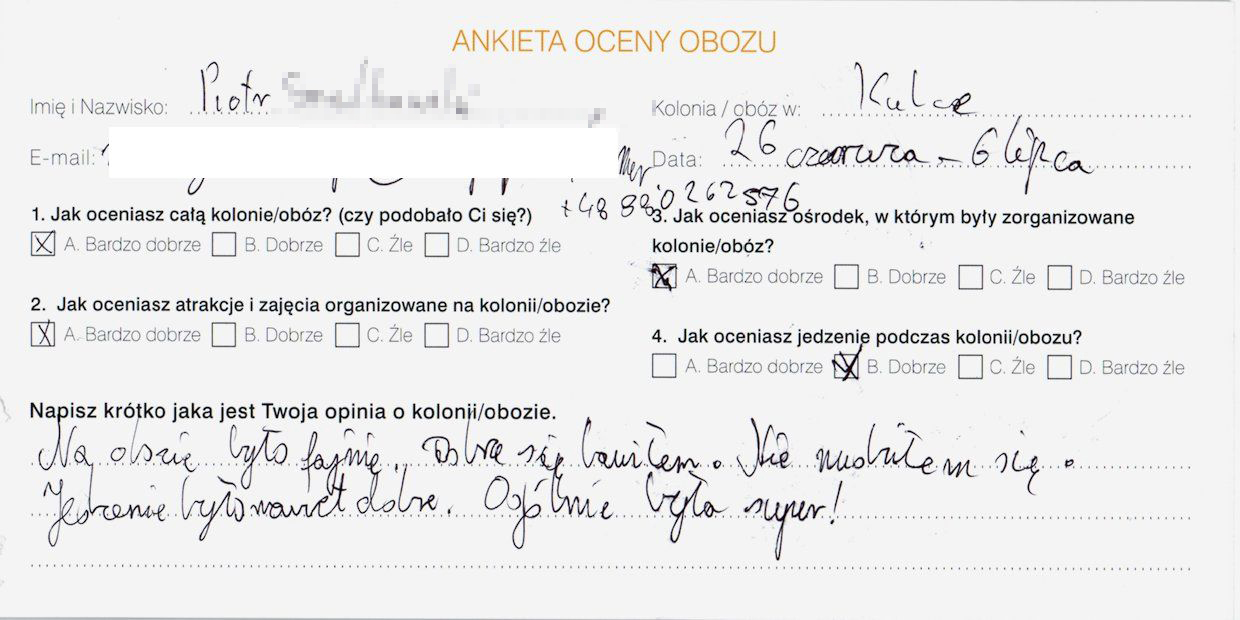 ANKIETA OCENY OBOZU
Imię i Nazwisko: Piotr
Kolonia / obóz w:
E-mail:
Data: 26 czerwca - 6 lipca
+48 880 262576
1. Jak oceniasz całą kolonie/obóz? (czy podobało Ci się?)
X A. Bardzo dobrze B. Dobrze C. Źle D. Bardzo źle
2. Jak oceniasz atrakcje i zajęcia organizowane na kolonii/obozie?
X A. Bardzo dobrze B. Dobrze C. Źle D. Bardzo źle
3. Jak oceniasz ośrodek, w którym były zorganizowane
kolonie/obóz?
X A. Bardzo dobrze B. Dobrze C. Źle D. Bardzo źle
4. Jak oceniasz jedzenie podczas kolonii/obozu?
A. Bardzo dobrze X B. Dobrze C. Źle D. Bardzo źle
Napisz krótko jaka jest Twoja opinia o kolonii/obozie.
Na obozie było fajnie. Dobrze się bawiłem. Nie nudziłem się.
Jedzenie było nawet dobre. Ogólnie była super!